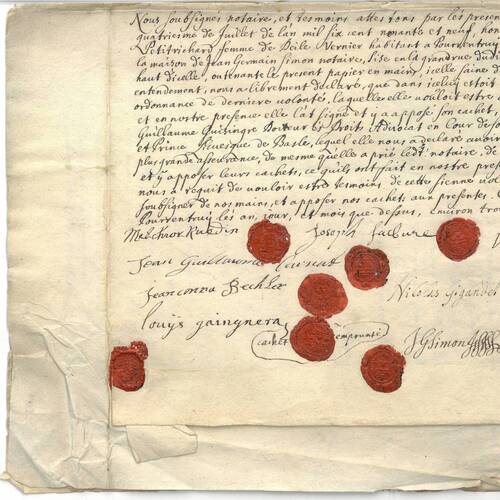 Nous soubsignes notaire, et tesmoins attestons par les presen
quatriesme de Juillet de lan mil six cent nonante et neuf, hon
Petitrichard femme de Vernier habitant a Pourrentruy
la maison de Jean Germain Simon notaire, sise en la grandrue du di
haut dicelle, ou tenante le present papier en main, icelle saine d
entendement, nous a librement declaré, que dans iceluy estoit
ordonnance de derniere volonté, laquelle elle vouloit estre
et en nostre presence elle lat signé et y a apposé son cachet,
Guillaume Quisinge Docteur es Droits Advocat en Cour de so
et Prince Evesque de Basle, lequel elle nous a declaré avoir
plus grande asseurance, de mesme quelle a prié ledt. notaire, de
et y apposer leurs cachets, ce quils ont fait en nostre pre
nous a requit de vouloir estre tesmoins de cette sienne vol
soubsigner de nos mains, et apposer nos cachets aux presentes.
Pourrentruy les an, jour, et mois que dessus, environ tro
Melchior Ruedin Joseph
Jean Guillaume
Jean conra Bechle Nicolas Gigandet
Louys gaingnera
cachet emprunté
JGSimon